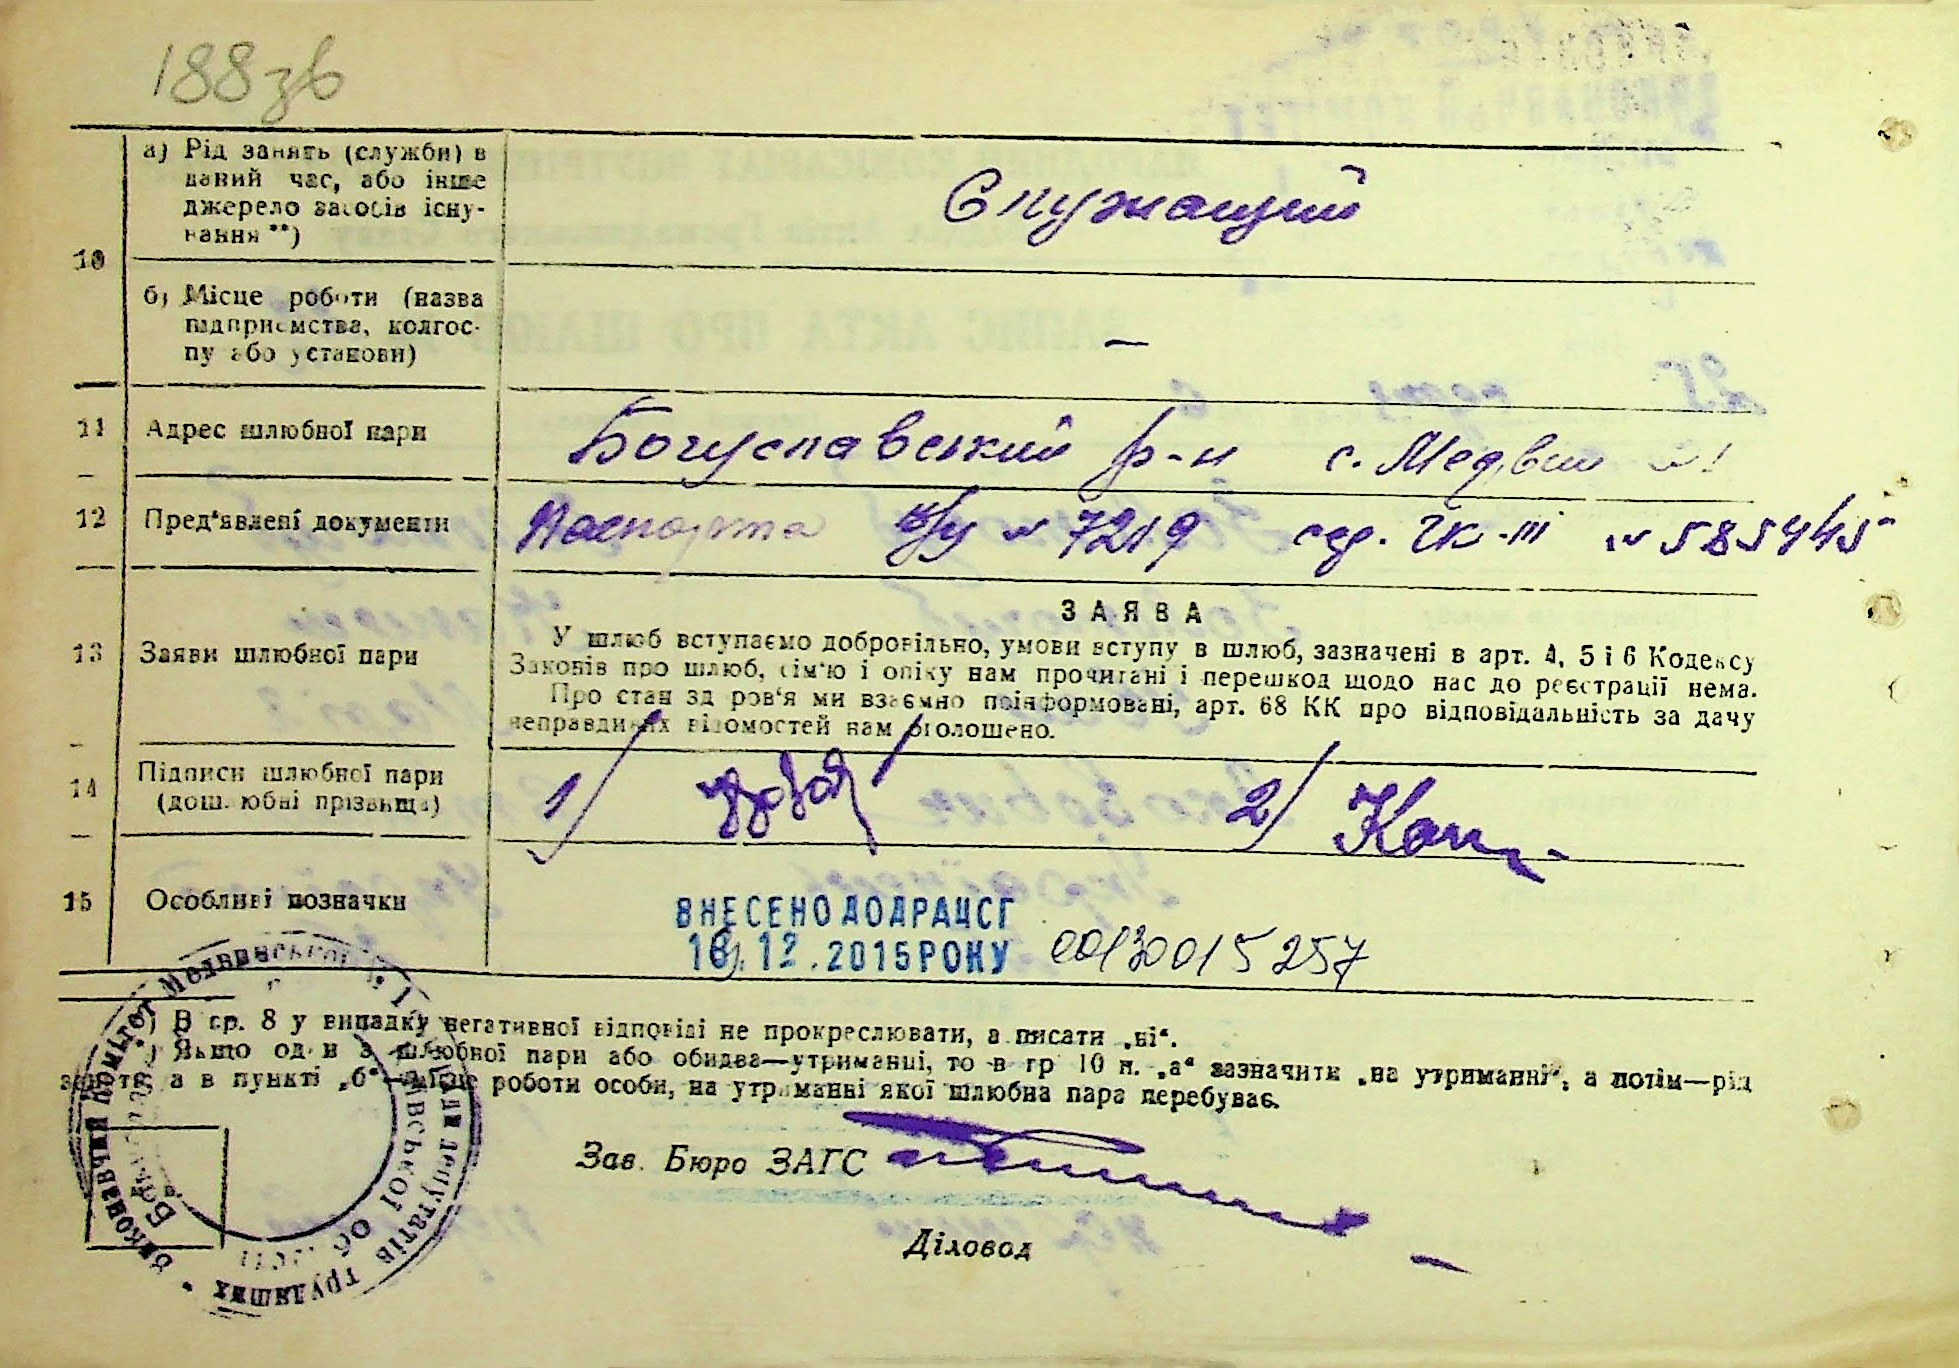 188зв
10
а) Рід занять (служби) в
даний час, або інше
джерело засобів існу-
вання **)
Служащий
б) Місце роботи (назва
підприємства, колгос-
пу або установи)
—
11
Адрес шлюбної пари
Богуславський р-н с. Медвин
12
Пред'явлені документи
Паспорта № 7219 сер. ІЧК-III № 585445
13
Заяви шлюбної пари
ЗАЯВА
У шлюб вступаємо добровільно, умови вступу в шлюб, зазначені в арт. 4, 5 і 6 Кодексу
Законів про шлюб, сім'ю і опіку нам прочитані і перешкод щодо нас до реєстрації нема.
Про стан здоров'я ми взаємно поінформовані, арт. 68 КК про відповідальність за дачу
неправдивих відомостей нам оголошено.
14
Підписи шлюбної пари
(дошлюбні прізвища)
1/
2/
15
Особливі позначки
ВНЕСЕНО ДО ДРАЦСГ
16.12.2015 РОКУ 00130015257
*) В гр. 8 у випадку негативної відповіді не прокреслювати, а писати „ні“.
**) Якщо один з шлюбної пари або обидва—утриманці, то в гр 10 п. „а“ зазначити „на утриманні“, а потім—рід
занять, а в пункті „б“—місце роботи особи, на утриманні якої шлюбна пара перебуває.
Зав. Бюро ЗАГС
Діловод —
Виконавчий комітет Медвинської депутатів трудящих